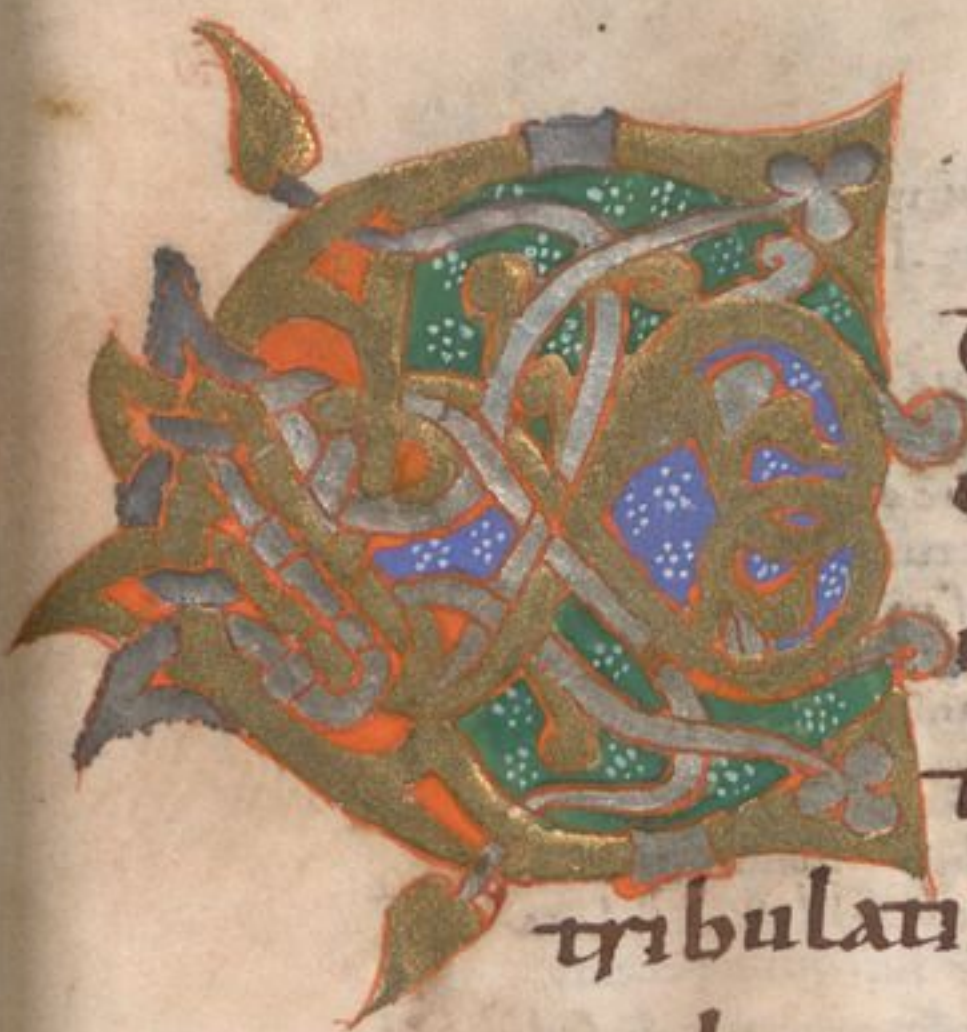 E
tribulati